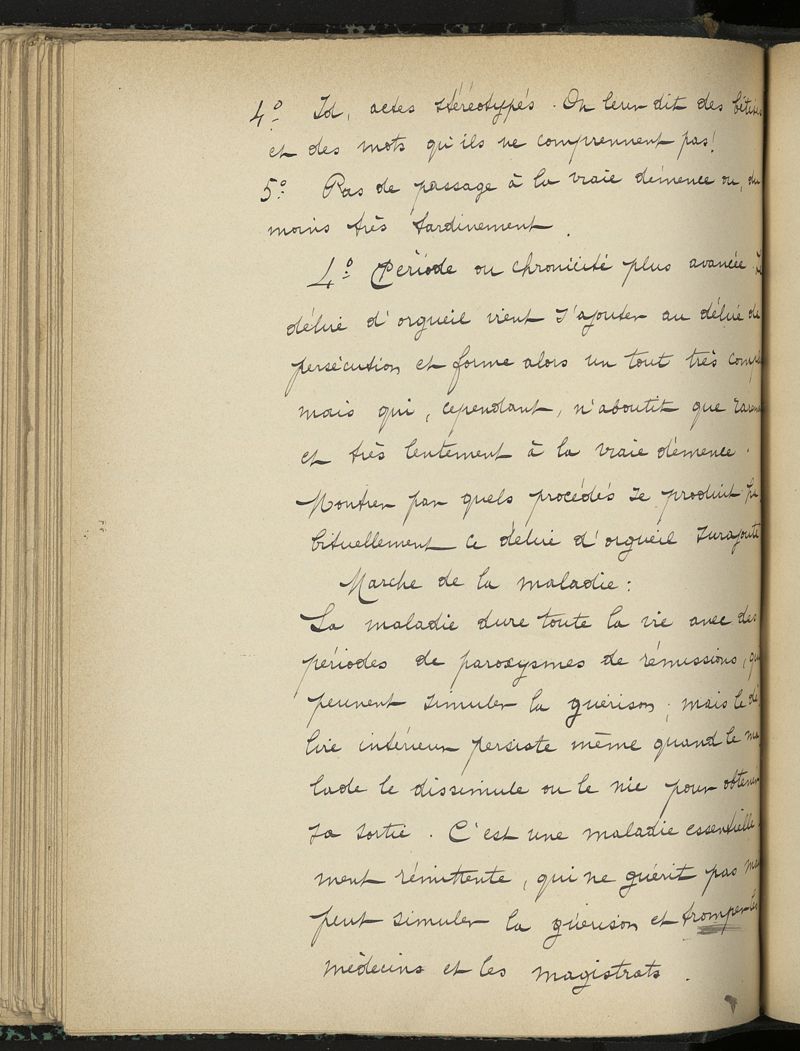 4º Id, actes stéréotypés. On leur dit des bêtises
et des mots qu'ils ne comprennent pas!
5º Pas de passage à la vraie démence ou, du
moins très tardivement.
4º Période ou chronicité plus avancée.
délire d'orgueil vient s'ajouter au délire de
persécution et forme alors un tout très comp
mais qui, cependant, n'aboutit que rarem
et très lentement à la vraie démence.
Montrer par quels procédés se produit ha
bituellement ce délire d'orgueil surajouté
Marche de la maladie:
La maladie dure toute la vie avec des
périodes de paroxysmes de rémissions, qui
peuvent simuler la guérison; mais le dé
lire intérieur persiste même quand le ma
lade le dissimule ou le nie pour obtenir
sa sortie. C'est une maladie essentielle
ment rémittente, qui ne guérit pas mais
peut simuler la guérison et tromper les
médecins et les magistrats.